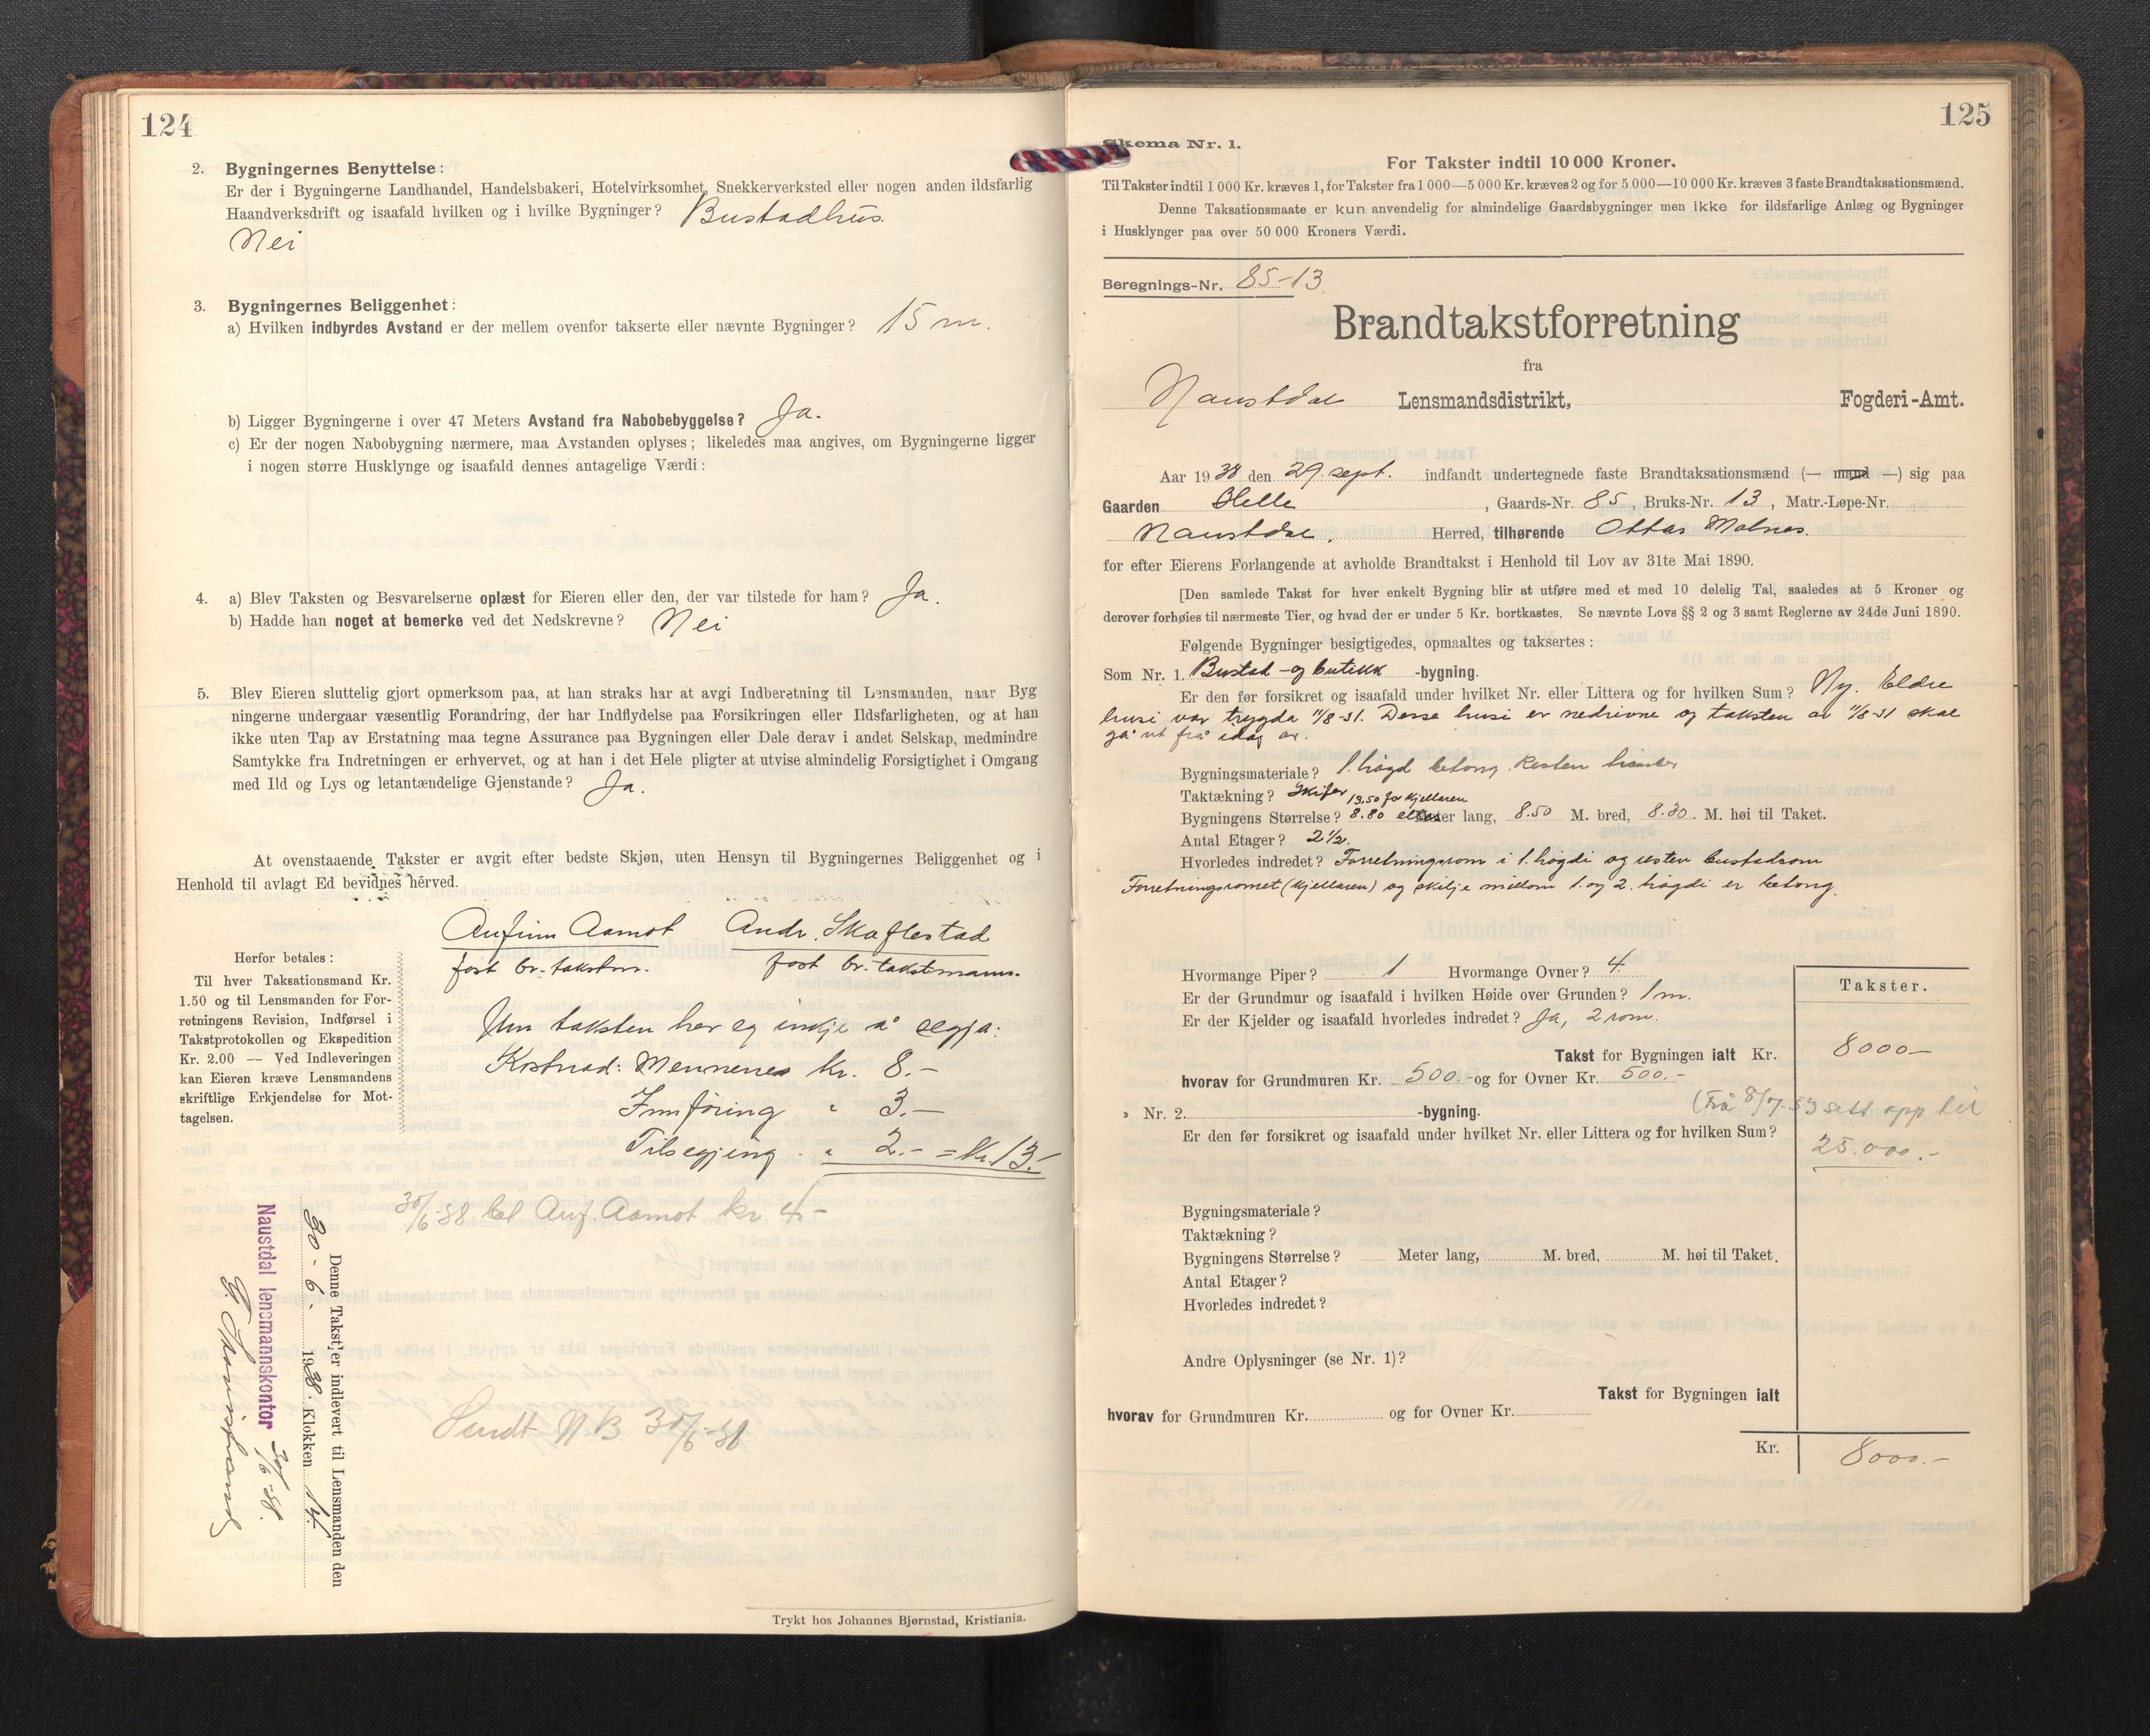 124
2. Bygningernes Benyttelse:
Er der i Bygningerne Landhandel, Handelsbakeri, Hotelvirksomhet, Snekkerverksted eller nogen anden ildsfarlig
Haandverksdrift og isaafald hvilken og i hvilke Bygninger? Bustadhus.
Nei
3. Bygningernes Beliggenhet:
a) Hvilken indbyrdes Avstand er der mellem ovenfor takserte eller nævnte Bygninger? 15 m.
b) Ligger Bygningerne i over 47 Meters Avstand fra Nabobebyggelse? Ja.
c) Er der nogen Nabobygning nærmere, maa Avstanden oplyses; likeledes maa angives, om Bygningerne ligger
i nogen større Husklynge og isaafald dennes antagelige Værdi:
4. a) Blev Taksten og Besvarelserne oplæst for Eieren eller den, der var tilstede for ham? Ja.
b) Hadde han noget at bemerke ved det Nedskrevne? Nei
5. Blev Eieren sluttelig gjort opmerksom paa, at han straks har at avgi Indberetning til Lensmanden, naar Byg
ningerne undergaar væsentlig Forandring, der har Indflydelse paa Forsikringen eller Ildsfarligheten, og at han
ikke uten Tap av Erstatning maa tegne Assurance paa Bygningen eller Dele derav i andet Selskap, medmindre
Samtykke fra Indretningen er erhvervet, og at han i det Hele pligter at utvise almindelig Forsigtighet i Omgang
med Ild og Lys og letantændelige Gjenstande? Ja.
At ovenstaaende Takster er avgit efter bedste Skjøn, uten Hensyn til Bygningernes Beliggenhet og i
Henhold til avlagt Ed bevidnes herved.
Anfinn Aamot Andr. Skaflestad
fast br.-takstm. fast br.-takstmann.
Herfor betales:
Til hver Taksationsmand Kr.
1.50 og til Lensmanden for For-
retningens Revision, Indførsel i
Takstprotokollen og Ekspedition
Kr. 2.00 — Ved Indleveringen
kan Eieren kræve Lensmandens
skriftlige Erkjendelse for Mot-
tagelsen.
Um taksten har eg inkje å segja.
Kostnad: Mennene kr. 8.-
Innføring " 3.-
Tilsegjing " 2.- = kr. 13.-
30/6-38 bet Anf. Aamot kr 4.-
Denne Takst er indlevert til Lensmanden den
30 - 6 - 1938. Klokken 14.
Naustdal lensmannskontor 30/6-38.
Sendt N.B. 30/6-38
Trykt hos Johannes Bjørnstad, Kristiania.
125
Skema Nr. 1.
For Takster indtil 10 000 Kroner.
Til Takster indtil 1 000 Kr. kræves 1, for Takster fra 1 000—5 000 Kr. kræves 2 og for 5 000—10 000 Kr. kræves 3 faste Brandtaksationsmænd.
Denne Taksationsmaate er kun anvendelig for almindelige Gaardsbygninger men ikke for ildsfarlige Anlæg og Bygninger
i Husklynger paa over 50 000 Kroners Værdi.
Beregnings-Nr. 85-13
Brandtakstforretning
fra
Naustdal Lensmandsdistrikt, Fogderi-Amt.
Aar 1938 den 29. sept. indfandt undertegnede faste Brandtaksationsmænd (— mand —) sig paa
Gaarden Helle, Gaards-Nr. 85, Bruks-Nr. 13, Matr.-Løpe-Nr.
Naustdal. Herred, tilhørende Ottar Malnes.
for efter Eierens Forlangende at avholde Brandtakst i Henhold til Lov av 31te Mai 1890.
[Den samlede Takst for hver enkelt Bygning blir at utføre med et med 10 delelig Tal, saaledes at 5 Kroner og
derover forhøies til nærmeste Tier, og hvad der er under 5 Kr. bortkastes. Se nævnte Lovs §§ 2 og 3 samt Reglerne av 24de Juni 1890.
Følgende Bygninger besigtigedes, opmaaltes og taksertes:
Som Nr. 1. Bustad- og butikk -bygning.
Er den før forsikret og isaafald under hvilket Nr. eller Littera og for hvilken Sum? Ny. Eldre
husi var trygda 11/8-31. Desse husi er nedrivne og taksten av 11/8-31 skal
gå ut frå idag av.
Bygningsmateriale? 1. høgd betong. Resten
Taktækning? Skifer 13.50 for kjellaren
Bygningens Størrelse? 8.80 elles Meter lang, 8.50 M. bred, 8.30. M. høi til Taket.
Antal Etager? 2 1/2.
Hvorledes indredet? Forretningsrom i 1. høgdi og resten bustadrom
Forretningsromet (kjellaren) og skilje millom 1. og 2. høgdi er betong.
Hvormange Piper? 1 Hvormange Ovner? 4.
Er der Grundmur og isaafald i hvilken Høide over Grunden? 1 m.
Er der Kjelder og isaafald hvorledes indredet? Ja, 2 rom.
Takster.
Takst for Bygningen ialt Kr. 8000-
hvorav for Grundmuren Kr. 500.- og for Ovner Kr. 500.-
(Frå 8/7-53 sett opp til
25.000.-
» Nr. 2. -bygning.
Er den før forsikret og isaafald under hvilket Nr. eller Littera og for hvilken Sum?
Bygningsmateriale?
Taktækning?
Bygningens Størrelse? Meter lang, M. bred, M. høi til Taket.
Antal Etager?
Hvorledes indredet?
Andre Oplysninger (se Nr. 1)?
Takst for Bygningen ialt
hvorav for Grundmuren Kr. og for Ovner Kr.
Kr. 8000.-